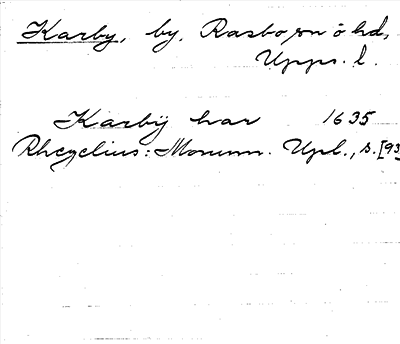 Karby, by, Rasbo sn o hd,
Upps. l.
Karbÿ har 1635
Rhezelius: Monum. Upl., s. [93